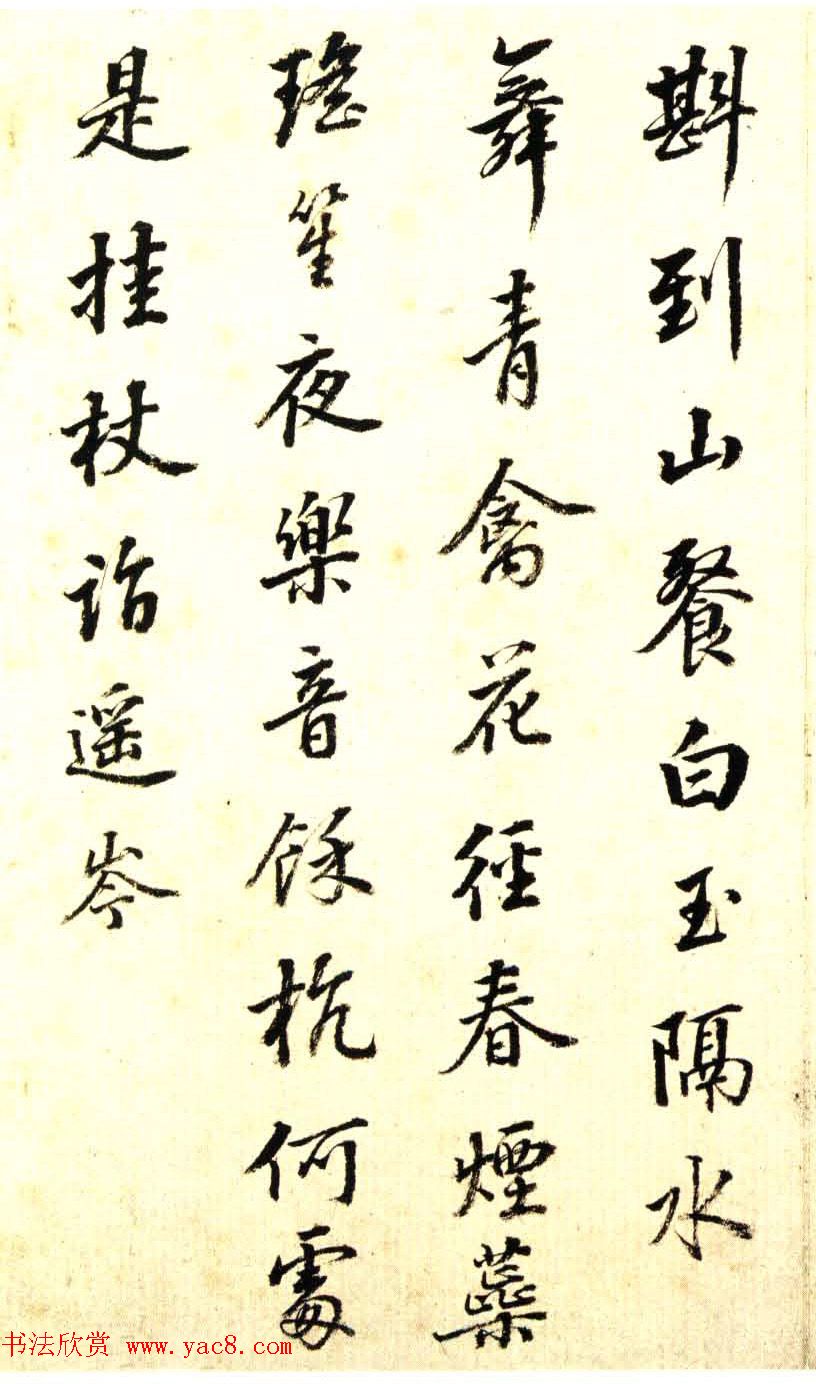 斟到山餐白玉隔水
舞青禽花徑春煙蘂
瑤笙夜樂音餘杭何處
是挂杖詣遥岑
书法欣赏 www.yac8.com